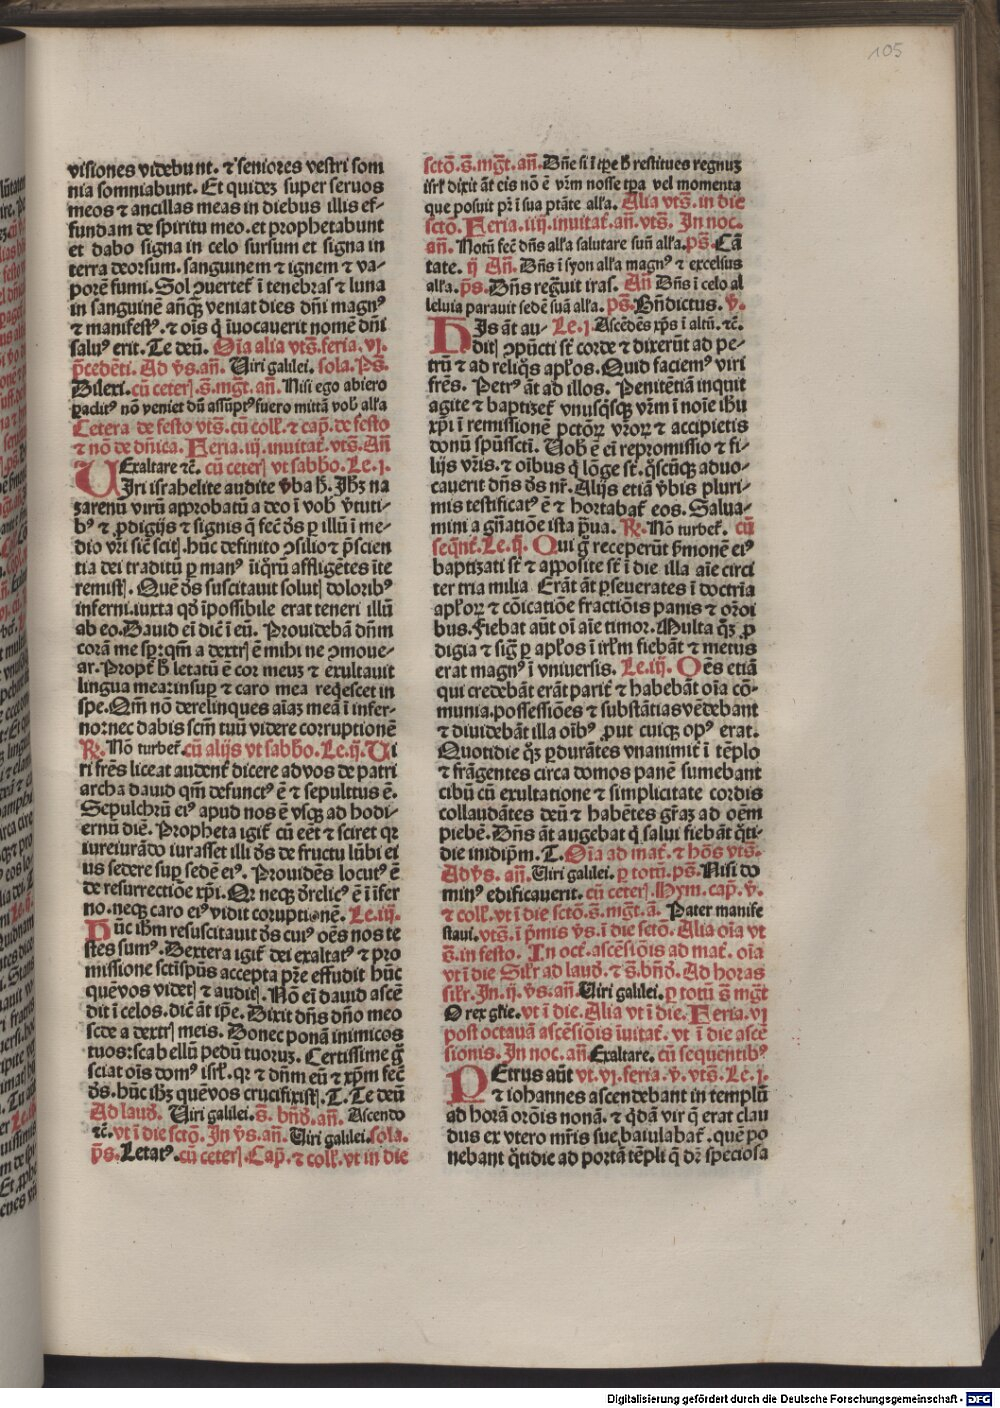 105
visiones videbunt. ⁊ seniores vestri som
nia somniabunt. Et quidez super seruos
meos ⁊ ancillas meas in diebus illis ef-
fundam de spiritu meo. et prophetabunt
et dabo signa in celo sursum et signa in
terra deorsum. sanguinem ⁊ ignem ⁊ va-
porē fumi. Sol ꝯuertet̄ ī tenebras ⁊ luna
in sanguinē añq̄ꝫ veniat dies dñi magnꝰ
⁊ manifestꝰ. ⁊ oīs q̄ īuocauerit nomē dñi
saluꝰ erit. Te deū. Oīa alia vts̄. feria. vj.
p̄cedēti. Ad v̄s. añ. Uiri galilei. sola. Ps̄.
Dilexi. cū ceterꝭ. s̄. mgt̄. añ. Nisi ego abiero
ꝑaclitꝰ nō veniet dū assūptꝰ fuero mittā vob̄ alīa
Cetera de festo vts̄. cū coll̄. ⁊ cap̄. de festo
⁊ nō de dñica. Feria. iij. inuitat̄. vts̄. Añ
Exaltare ⁊c̄. cū ceterꝭ vt sabb̄o. Le. j.
UIri israhelite audite v̄ba h̄. Ihꝫ na
zarenū virū approbatū a deo ī vob̄ v̄tuti-
bꝰ ⁊ ꝓdigijs ⁊ signis q̄ fec̄ ds̄ ꝑ illū ī me-
dio vr̄i sic̄ scitꝭ. hūc definito ꝯsilio ⁊ p̄scien
tia dei traditū ꝑ manꝰ īiq̄rū affligētes īte
remistꝭ. Quē ds̄ suscitauit solutꝭ doloribꝰ
inferni. iuxta qd̄ īpossibile erat teneri illū
ab eo. Dauid eī dic̄ ī eū. Prouidebā dñm
corā me sp̄. qm̄ a dextrꝭ ē mihi ne ꝯmoue-
ar. Propt̄ h̄ letatū ē cor meuꝫ ⁊ exultauit
lingua mea: insuꝑ ⁊ caro mea reqescet in
spe. Qm̄ nō derelinques aīaꝫ meā ī infer-
no: nec dabis scm̄ tuū videre corruptionē
R. Nō turbet̄. cū alijs vt sabb̄o. Le. ij. Ui
ri frēs liceat audent̄ dicere ad vos de patri
archa dauid qm̄ defunctꝰ ē ⁊ sepulttus ē.
Sepulchrū eiꝰ apud nos ē vsqꝫ ad hodi-
ernū diē. Propheta igit̄ cū eēt ⁊ sciret qꝛ
iureiurādo iurasset illi ds̄ de fructu lūbi ei
us sedere suꝑ sedē eiꝰ. Prouidēs locutꝰ ē
de resurrectiōe xp̄i. Qꝛ neqꝫ d̄relicꝰ ē ī īfer
no. neqꝫ caro eiꝰ vidit coruptionē. Le. iij.
Hūc ihm̄ resuscitauit ds̄ cuiꝰ oēs nos te
stes sumꝰ. Dextera igit̄ dei exaltatꝰ ⁊ pro
missione sctīspūs accepta pr̄e effudit hūc
quē vos videtꝭ ⁊ auditꝭ. Nō eī dauid ascē
dit ī celos. dic̄ āt ip̄e. Dixit dn̄s dño meo
sede a dextrꝭ meis. Donec ponā inimicos
tuos: scabellū pedū tuoruꝫ. Certissime g̊
sciat oīs domꝰ isrl̄. qꝛ ⁊ dñm eū ⁊ xp̄m fec̄
ds̄. hūc ihꝫ quē vos crucifixistꝭ. T. Te deū
Ad laud̄. Uiri galilei. s̄. bn̄d̄. añ. Ascendo
⁊c̄. vt ī die sctō. In v̄s. añ. Uiri galilei. sola.
ps̄. Letatꝰ. cū ceterꝭ. Cap̄. ⁊ coll̄. vt in die
sctō. s̄. mgt̄. añ. Dñe si ī tp̄e h̄ restitues regnuꝫ
isrl̄ dixit āt eis nō ē vr̄m nosse tp̄a vel momenta
que posuit pr̄ ī sua ptāte alīa. Alia vts̄. in die
sctō. Feria. iiij. inuitat̄. añ. vts̄. In noc.
añ. Notū fec̄ dn̄s alīa salutare suū alīa. ps̄. Cā
tate. ij Añ. Dn̄s ī syon alīa magnꝰ ⁊ excelsus
alīa. ps̄. Dn̄s regn̄uit iras. Añ Dn̄s ī celo al
leluia parauit sedē suā alīa. ps̄. Bn̄dictus. v̄.
HIs āt au- Le. j Ascēdēs xp̄s ī altū. ⁊c̄.
ditꝭ ꝯpūcti st̄ corde ⁊ dixerūt ad pe-
trū ⁊ ad reliq̄s apl̄os. Quid faciemꝰ viri
frēs. Petrꝰ āt ad illos. Penitētiā inquit
agite ⁊ baptizet̄ vnusq̄sqꝫ vr̄m ī noīe ihū
xp̄i ī remissionē pctōꝝ vr̄oꝝ ⁊ accipietis
donū spūssctī. Uob̄ ē eī repromissio ⁊ fi-
lijs vr̄is. ⁊ oībus q̄ lōge st̄. q̄scūqꝫ aduo-
cauerit dn̄s ds̄ nr̄. Alijs etiā v̄bis pluri-
mis testificatꝰ ē ⁊ hortabat̄ eos. Salua-
mini a gn̄atiōe ista p̄ua. R. Nō turbet̄. cū
seqn̄t̄. Le. ij. Qui g̊ receperūt s̄monē eiꝰ
baptizati st̄ ⁊ apposite st̄ ī die illa aīe circi
ter tria milia Erāt āt ꝑseuerātes ī doctrīa
apl̄oꝝ ⁊ cōicatiōe fractiōis panis ⁊ or̄oi
bus. Fiebat aūt oī aīe timor. Multa q̄ꝫ ꝓ
digia ⁊ sig̊ ꝑ apl̄os ī irl̄m fiebāt ⁊ metus
erat magnꝰ ī vniuersis. Le. iij. Oēs etiā
qui credebāt erāt parit̄ ⁊ habebāt oīa cō-
munia. possessiōes ⁊ substātias vēdebant
⁊ diuidebāt illa oībꝰ ꝓut cuiqꝫ opꝰ erat.
Quotidie q̄ꝫ ꝑdurātes vnanimit̄ ī tēplo
⁊ frāgentes circa domos panē sumebant
cibū cū exultatione ⁊ simplicitate cordis
collaudātes deū ⁊ habētes gr̄aꝫ ad oēm
plebē. Dn̄s āt augebat q̄ salui fiebāt q̄ti-
die inidip̄m. T. Oīa ad mat̄. ⁊ hōs vts̄.
Ad v̄s. añ. Uiri galilei. ꝑ totū. ps̄. Nisi do
minꝰ edificauerit. cū ceterꝭ. Hym. cap̄. v̄.
⁊ coll̄. vt ī die sctō. s̄. mgt̄. ā. Pater manife
staui. vts̄. ī p̄mis v̄s. ī die sctō. Alia oīa vt
s̄. in festo. In oct̄. ascēsiōis ad mat̄. oīa
vt ī die Silr̄ ad laud̄. ⁊ s̄. bn̄d̄. Ad horas
silr̄. In. ij. v̄s. añ. Uiri galilei. ꝑ totū s̄ mgt̄
O rex glīe. vt ī die. Alia vt ī die. Feria. vj
post octauā ascēsiōis īuitat̄. vt ī die ascē
sionis. In noc. añ. Exaltare. cū sequentibꝰ
PEtrus aūt vt. vj. feria. v̄. vts̄. Le. j.
⁊ iohannes ascendebant in templū
ad horā orōis nonā. ⁊ q̄dā vir q̄ erat clau
dus ex vtero mr̄is sue baiulabat̄. quē po
nebant q̄tidie ad portā tēpli q̄ dr̄ speciosa
Digitalisierung gefördert durch die Deutsche Forschungsgemeinschaft - DFG